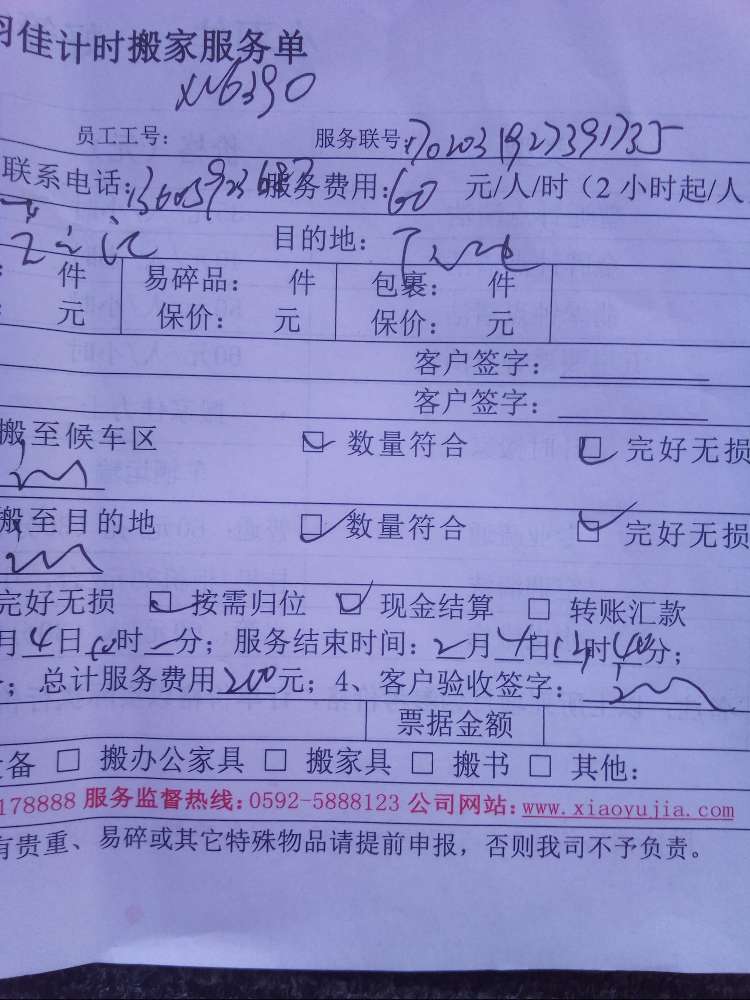 羽佳计时搬家服务单
员工工号： 服务联号：
联系电话： 服务费用：60 元/人/时（2 小时起/人
目的地：
件 易碎品： 件 包裹： 件
元 保价： 元 保价： 元
客户签字：
客户签字：
搬至候车区 ☑ 数量符合 ☑ 完好无损
搬至目的地 ☑ 数量符合 ☑ 完好无损
完好无损 ☑ 按需归位 ☑ 现金结算 □ 转账汇款
月4日 时 分；服务结束时间：2月4日12时40分；
；总计服务费用200元；4、客户验收签字：
票据金额
备 □ 搬办公家具 □ 搬家具 □ 搬书 □ 其他：
178888 服务监督热线：0592-5888123 公司网站：www.xiaoyujia.com
有贵重、易碎或其它特殊物品请提前申报，否则我司不予负责。